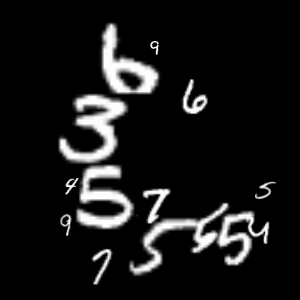 6 9
6
3
4 5 7 5
9 5 5 5 4
7